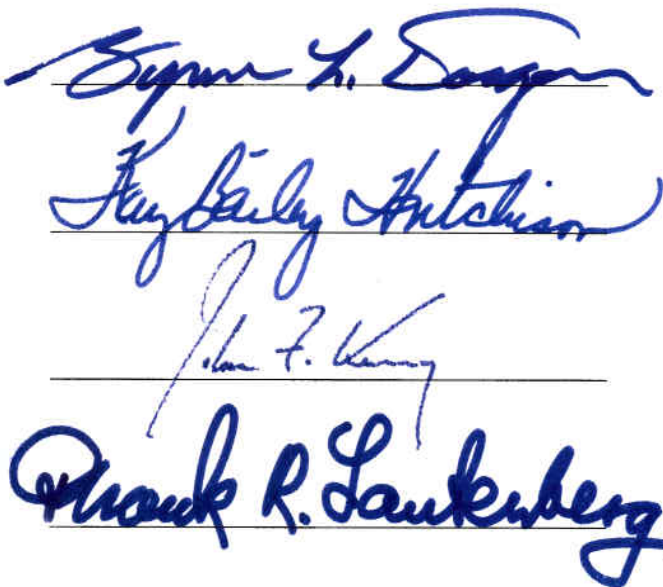 Byron L. Dorgan
Kay Bailey Hutchison
John F. Kerry
Frank R. Lautenberg